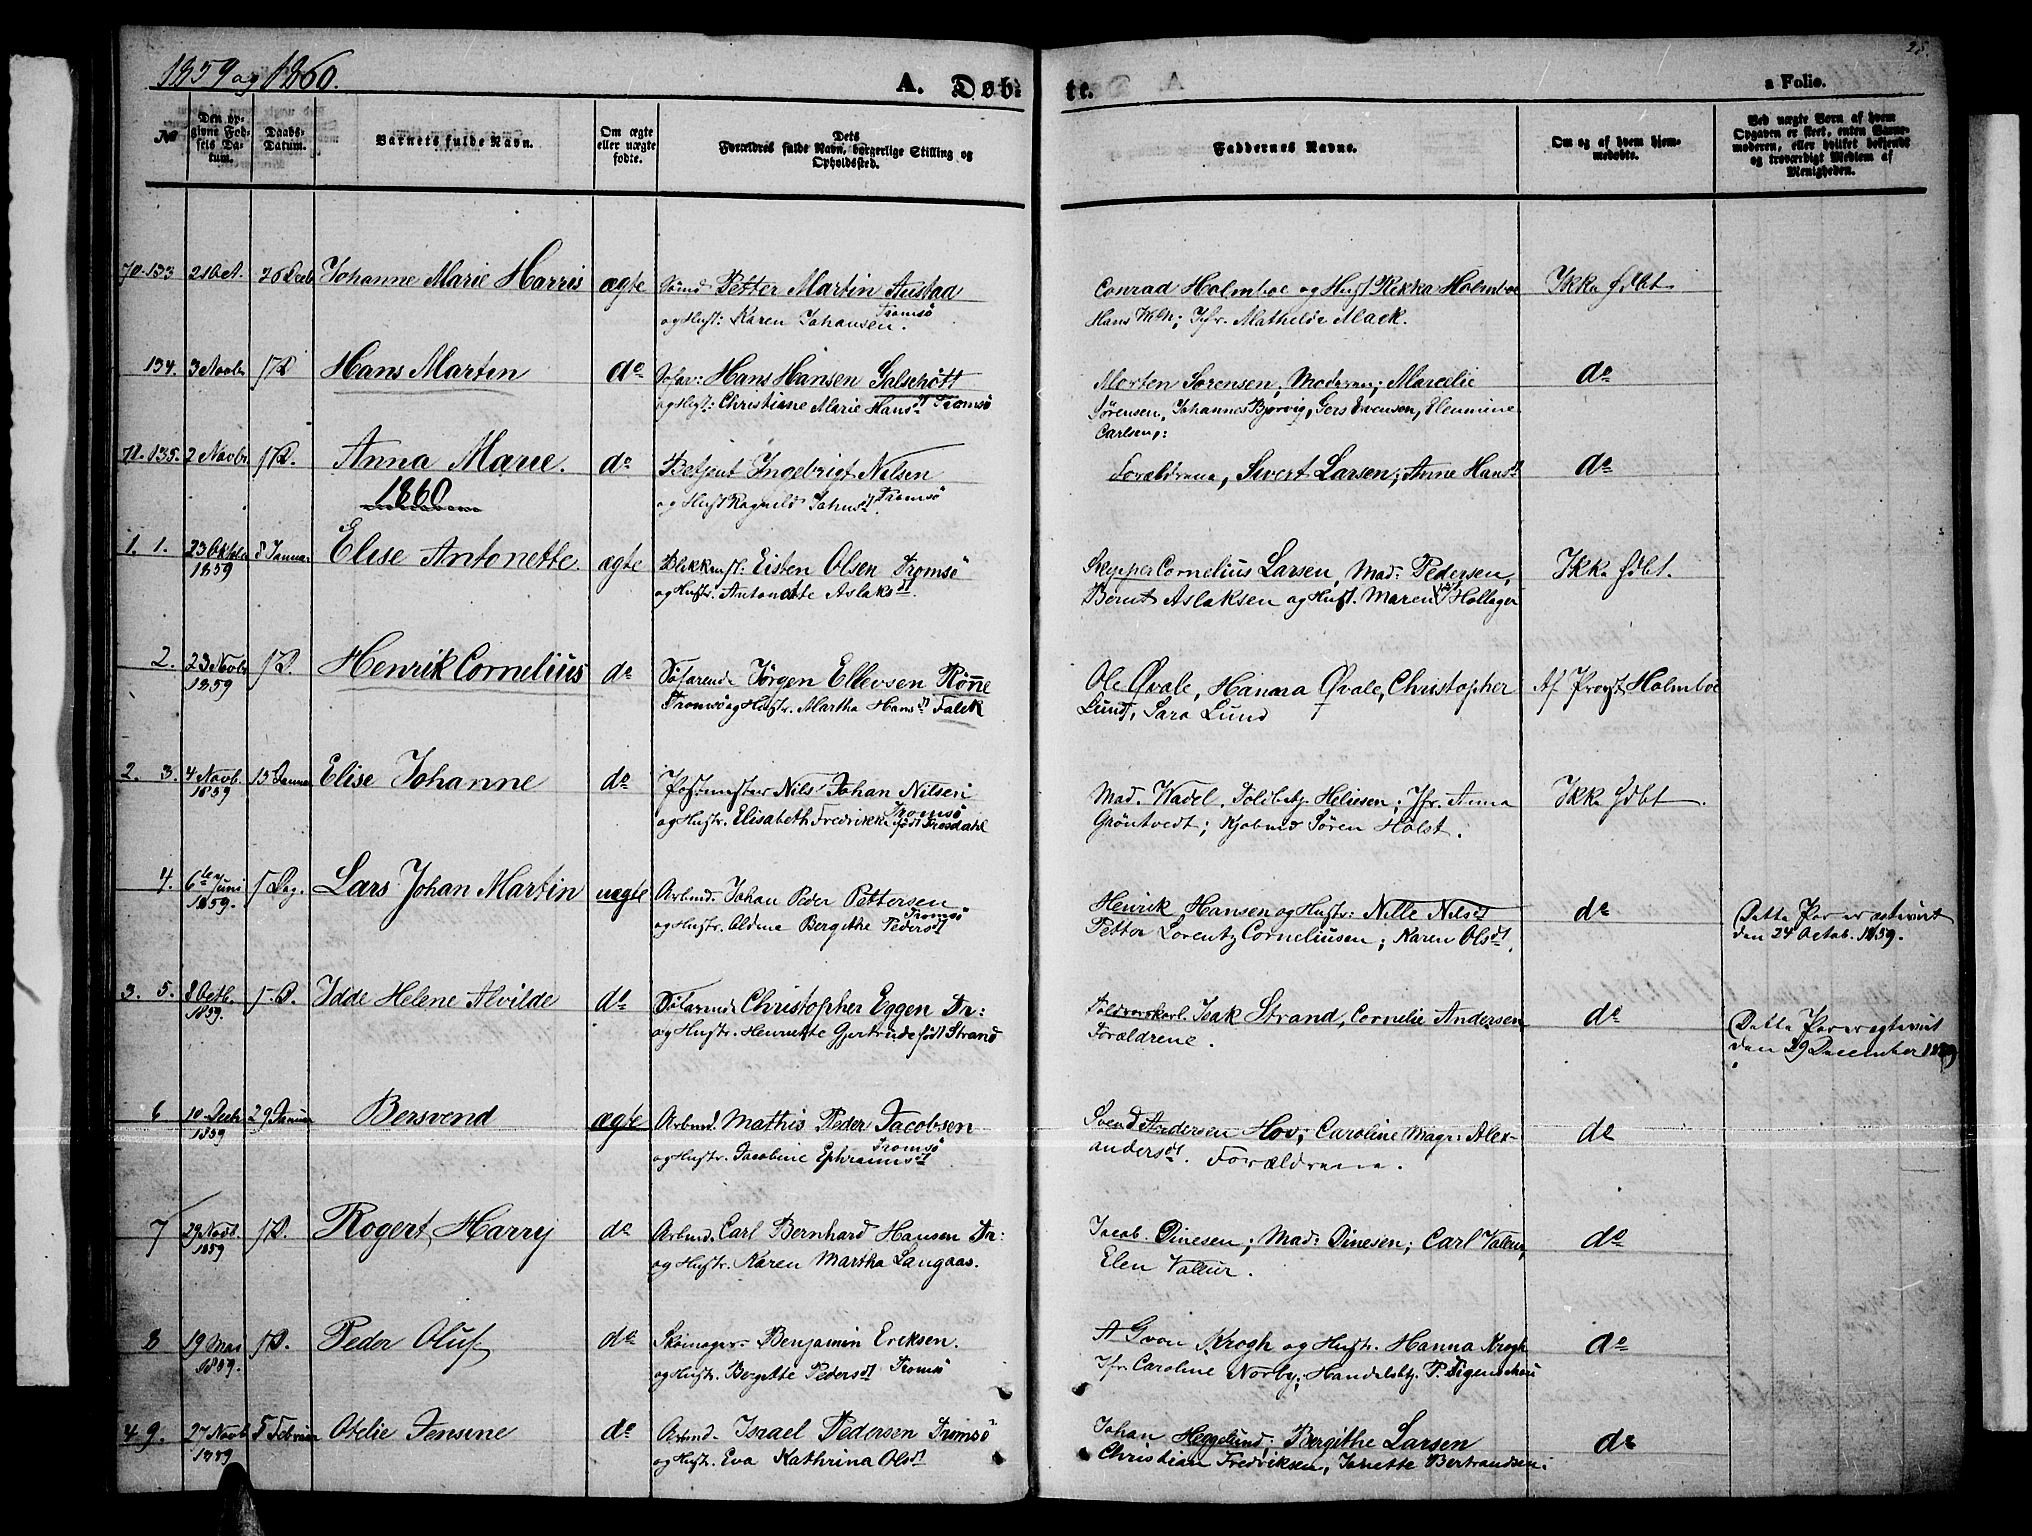 1859 og 1860.
A. Døb-
te.
a Folio.
28.
No
Den op-
givne Fød-
sels Da-
tum.
Daabs-
Datum.
Barnets fulde Navn.
Om ægte
eller uægte
fødte.
Dets
Forældres fulde Navn, borgerlige Stilling og
Opholdssted.
Faddernes Navne.
Om og af hvem hjem-
medøbte.
Ved uægte Børn af hvem
Opgaven er skeet, enten Barne-
moderen, eller hvilket bekjendt
og troværdigt Medlem af
Menigheden.
70. 133 2 Oct. 26 Decb Johanne Marie Harris ægte Petter Martin Austad
og Hust: Karen Johansen. Tromsö
Conrad Holmboe og Hust Rikka Holmboe Ikke hdbt
Hans; Jfr. Mathilde Mack.
134. 3 Novbr. S.D. Hans Martin do Søfar: Hans Hansen Galschött
og Hust: Christiane Marie Hansdt Tromsö
Morten Sørensen, Moderen; Marcelie do
Sørensen, Johannes Bjørvig, Gers Evensen, Elenmine
Carlsen,:
71. 135. 2 Novbr. S.D. Anna Marie. do Betjent Ingebrigt Nilsen
og Hust Ragnild Johnsdt. Tromsö
Forældrene, Sivert Larsen; Anne Hansdt do
1860
1. 1. 23 Oktober 8 Januar Elise Antonette. ægte Blikkensl: Eisten Olsen Tromsö
1859 og Hustr. Antonette Aslaksdt.
Skipper Cornelius Larsen, Mad: Pedersen, Ikke hdbt.
Bernt Aslaksen og Hust. Maren født Hollager
2. 23 Novbr S.D. Henrik Cornelius do Søfarende Jørgen Ellevsen Rönne
1859 Tromsö og Hustr. Martha Hansdt Falck
Ole Øvale, Hanna Øvale, Christopher Af Provst Holmboe
Lund, Sara Lund
2. 3. 4 Novb. 15 Januar Elise Johanne do Postmester Nils Johan Nilsen
1859 og Hustr. Elisabeth Fredrikke født Trosdahl Tromsö
Mad. Wadel, Toldbetj. Heliesen; Jfr. Anna Ikke hdbt.
Gröntvedt; Kjøbmd Søren Holst.
4. 6te Juni S. Dag. Lars Johan Martin uægte Arbmd. Johan Peder Pettersen
1859. og Hustr. Oldine Bergithe Pedersdt Tromsö
Henrik Hansen og Hustr: Nille Nilsdt do Dette Par er
Petter Lorentz Corneliusen; Karen Olsdt. den 24 Octob. 1859.
3. 5. 8 Octb. S.D. Idde Helene Alvilde do Søfarende Christopher Eggen Tr:
1859. og Hustr. Henriette Gjertrude født Strand
Isak Strand, Cornelie Andersen do Dette Par er
Forældrene. den 29 December 1859
6 10 Decbr 29 Januar Bersvend ægte Arbmd. Mathis Peder Jacobsen
1859 og Hustr. Jacobine Ephraimsdt Tromsö
Svend Andersen Hov; Caroline Magr: Alex- do
andersdt. Forældrene.
7 29 Novb. S.D. Rogert Harry do Arbmd. Carl Bernhard Hansen Tr:
1859 og Hustr. Karen Martha Langaas.
Jacob Dinesen; Mad: Dinesen; Carl Valeur, do
Elen Valeur.
8 19 Mai S.D. Peder Oluf do Skomager. Benjamin Eriksen.
1859. og Hustr. Bergitte Pedersdt Tromsö
A Gvon Krogh og Hustr. Hanna Krogh do
Jfr Caroline Norby; Handelsbtj. P. Figenschau
4. 9. 27 Novb 5 Februar Otelie Jensine do Arbmd. Israel Pedersen Tromsö
1859 og Hustr. Eva Kathrina Olsdt
Johan Heggelund, Bergithe Larsen do
Christian Fredriksen, Janette Bertrandsen.